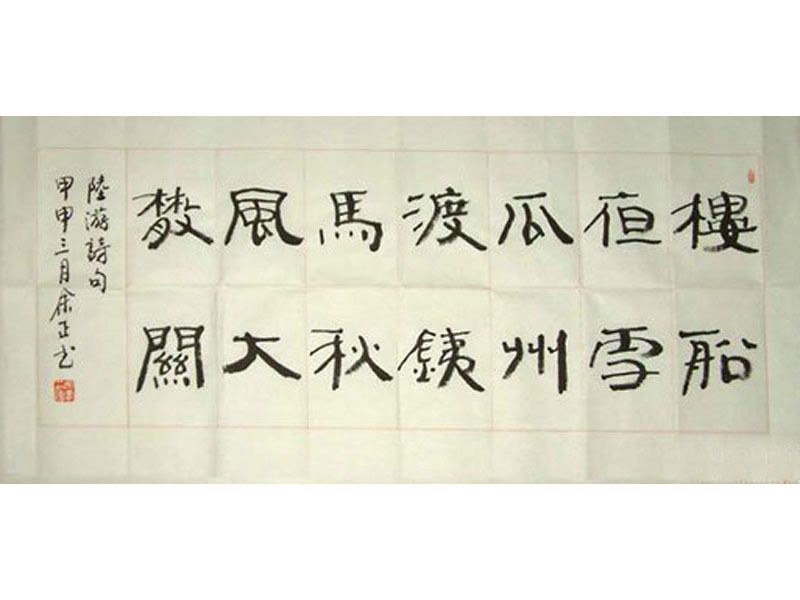 樓船
亱雪
瓜州
渡銕
馬秋
風大
㪔關
陸游詩句
甲申三月余正书